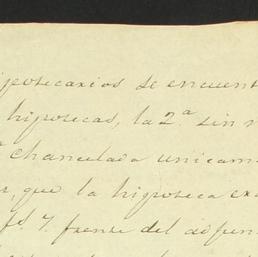 ipotecarios se encuent
hipotecas, la 2.ª sin
chancelada unicam
, que la hipoteca
fs. 7. frente del